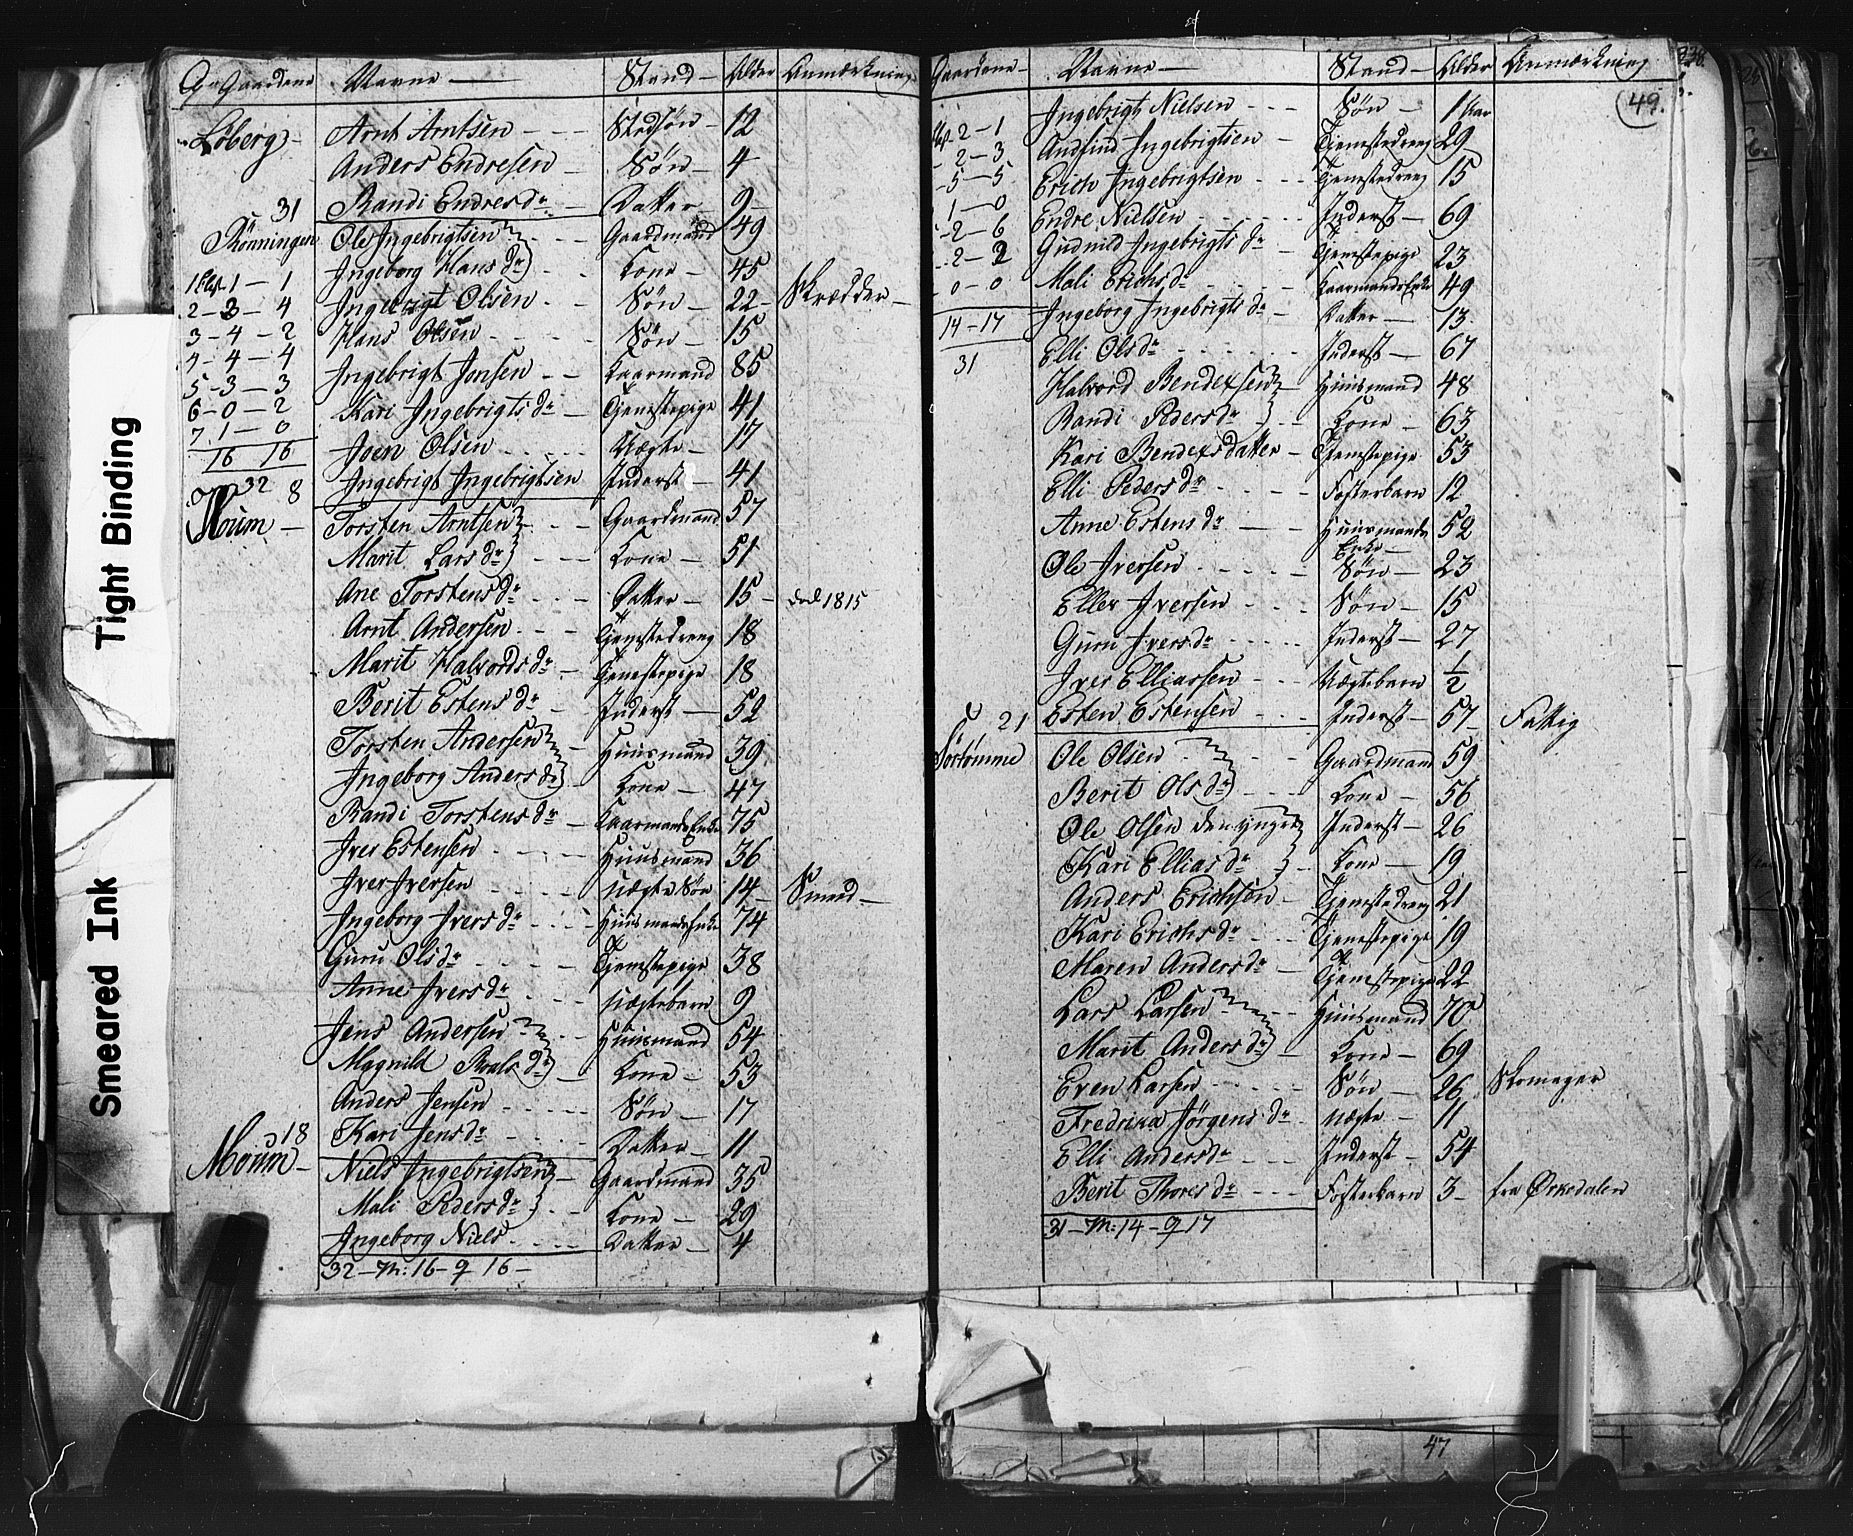 Gaardene Navne Stand Alder Anmærkning
Løberg Arnt Arntsen Stedsøn 12
Anders Endresen Søn 4
31 Randi Endresdr Datter 9
Rønningen Ole Ingebrigtsen Gaardmand 49
1 1 - 1 Ingeborg Hansdr Kone 45
2 - 3 - 4 Ingebrigt Olsen Søn 22 Skrædder
3 - 4 - 2 Hans Olsen Søn 15
4 - 4 - 4 Ingebrigt Jonsen Kaarmand 85
5 - 3 - 3 Kari Ingebrigtsdr Tjenestepige 41
6 - 0 - 2
7 1 - 0 Joen Olsen Uægte 17
16 16 Ingebrigt Ingebrigtsen Inderst 41
32 8
Moum Torsten Arntsen Gaardmand 57
Marit Larsdr Kone 51
Ane Torstensdr Datter 15 død 1815
Arnt Andersen Tjenestedreng 18
Marit Halvordsdr Tjenestepige 18
Berit Estensdr Inderst 52
Torsten Andersen Huusmand 39
Ingeborg Andersdr Kone 47
Randi Torstensdr Kaarmands Enke 75
Iver Estensen Huusmand 36
Iver Iversen uægte Søn 14 Smed
Ingeborg Iversdr Huusmands Enke 74
Guru Olsdr Tjenestepige 38
Anne Iversdr uægtebarn 9
Jens Andersen Huusmand 54
Magnild Roalsdr Kone 53
Anders Jensen Søn 17
18 Kari Jensdr Datter 11
Moum Niels Ingebrigtsen Gaardmand 35
Mali Pedersdr Kone 29
Ingeborg Niels Datter 4
32 - M: 16 - Q 16 -
Tight Binding
Smeared Ink
Gaardene Navne Stand Alder Anmærkning
49.
2 - 1 Ingebrigt Nielsen Søn 1 Aar
2 - 3 Andfind Ingebrigtsen Tjenestedreng 29
5 - 5 Erich Ingebrigtsen Tjenestedreng 15
1 - 0 Endre Nielsen Inderst 69
2 - 6 Gudnild Ingebrigtsdr Tjenestepige 23
2 - 2 Mali Erichsdr Kaarmands Enke 49
0 - 0 Ingeborg Ingebrigtsdr Datter 13
14 - 17 Elli Olsdr Inderst 67
31 Halvord Bendexsen Huusmand 48
Randi Pedersdr Kone 63
Kari Bendexsdatter Tjenestepige 53
Elli Pedersdr Fosterbarn 12
Anne Estensdr Huusmands Enke 52
Ole Iversen Søn 23
Eller Iversen Søn 15
Guru Iversdr Inderst 27
Iver Elliassen Uægtebarn 1/2
21 Esten Estensen Inderst 57 Fattig
Sørtømme Ole Olsen Gaardmand 59
Berit Olsdr Kone 56
Ole Olsen den yngre Inderst 26
Kari Elliasdr Kone 19
Anders Erichsen Tjenestedreng 21
Kari Erichsdr Tjenestepige 19
Maren Andersdr Tjenestepige 22
Lars Larsen Huusmand 70
Marit Andersdr Kone 69
Even Larsen Søn 26 Skomager
Fredrika Jørgensdr uægte 11
Elli Andersdr Inderst 54
Berit Thoresdr Fosterbarn 3 fra Ørkedalen
31 - M: 14 - Q 17
47